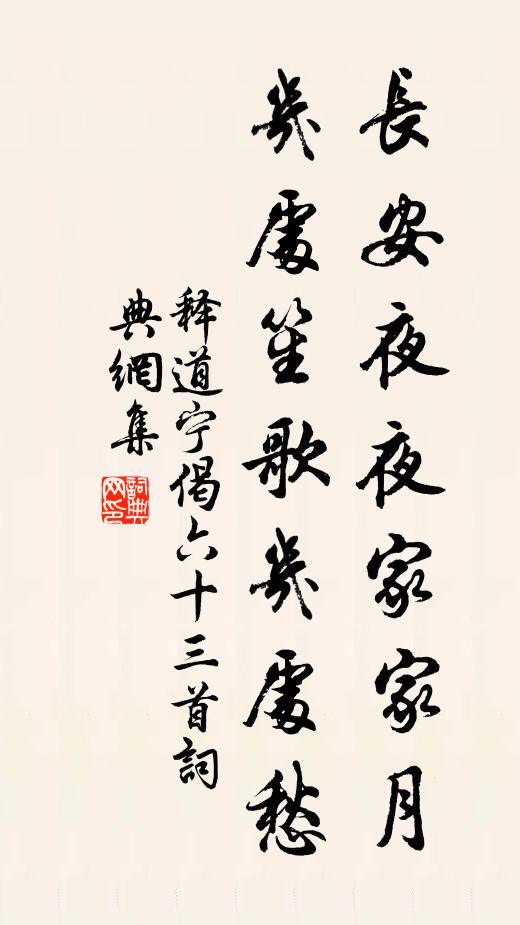 長安夜夜家家月
幾處笙歌幾處愁
释道宁偈六十三首詞
典網集
詞典
网印